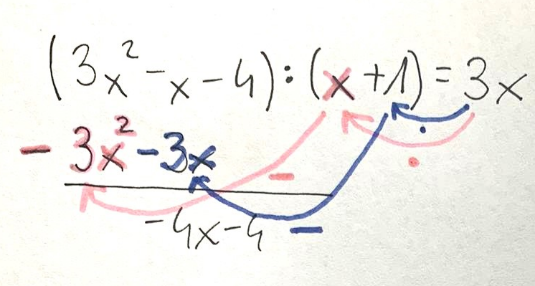 (3x²-x-4):(x+1)=3x
- 3x²-3x
-
-4x-4 -